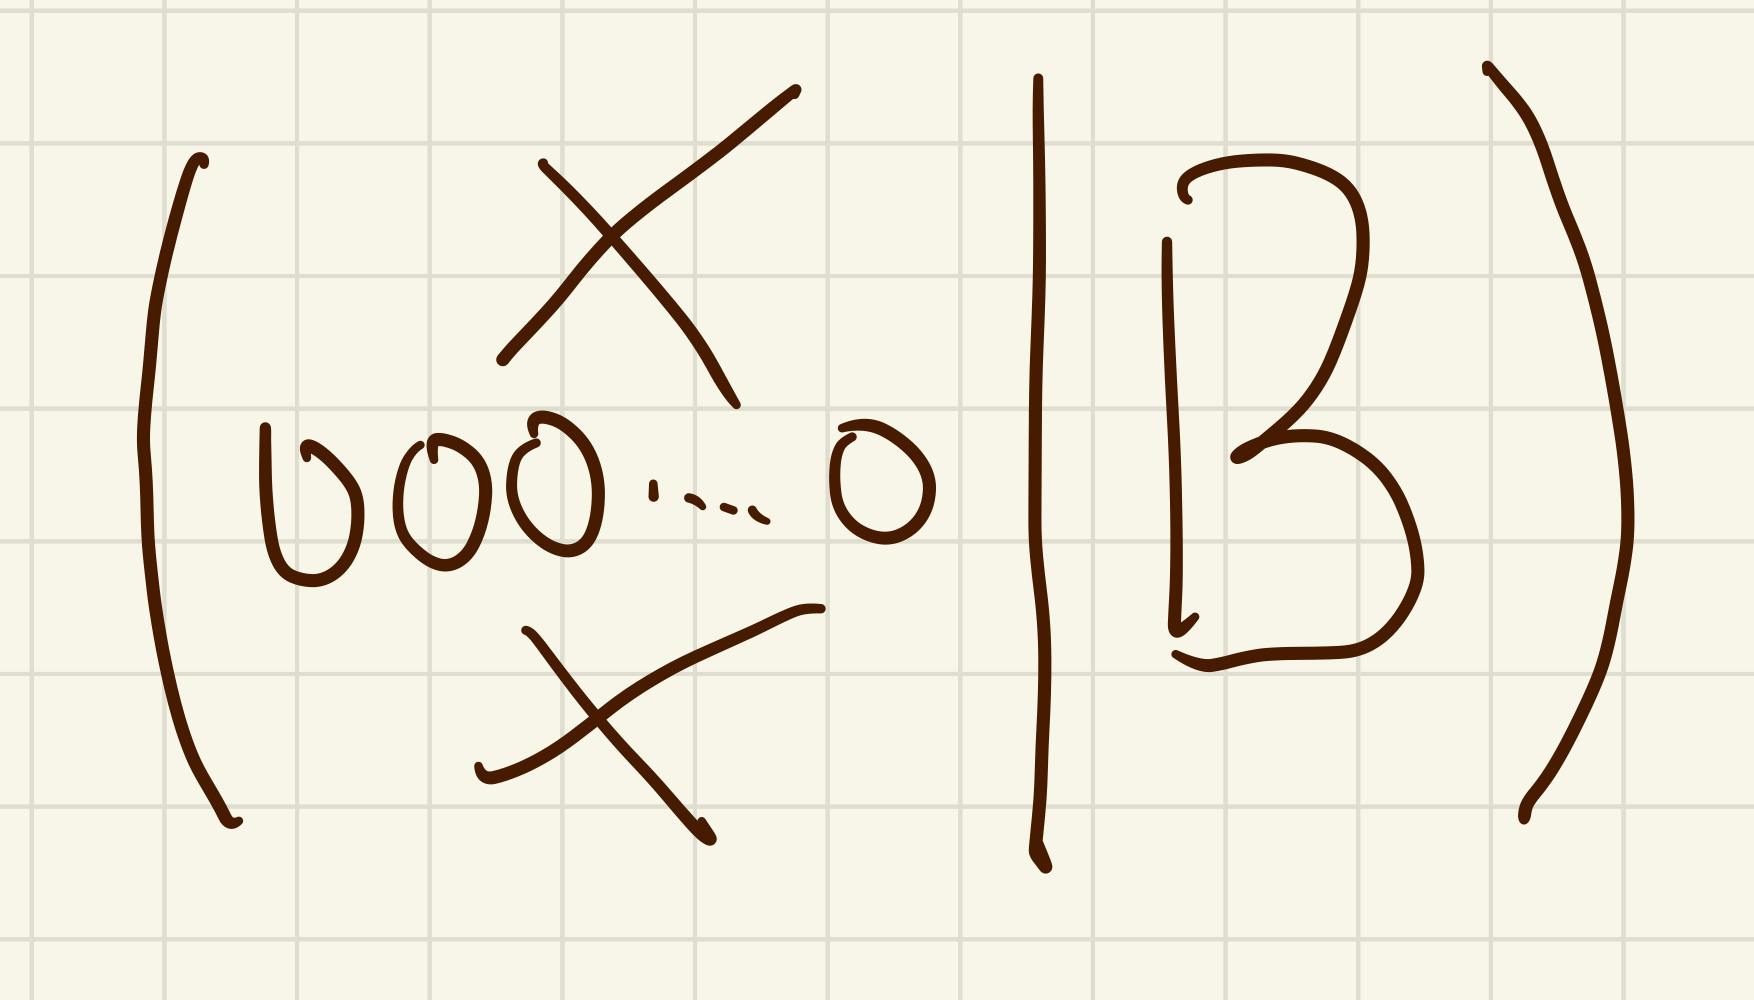 X
( 000 .... 0 | B )
X